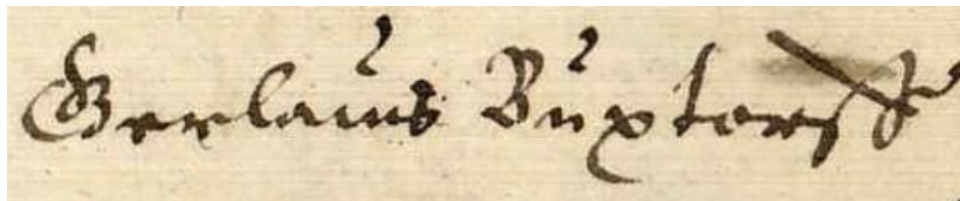 Gerlacus Buxtorff